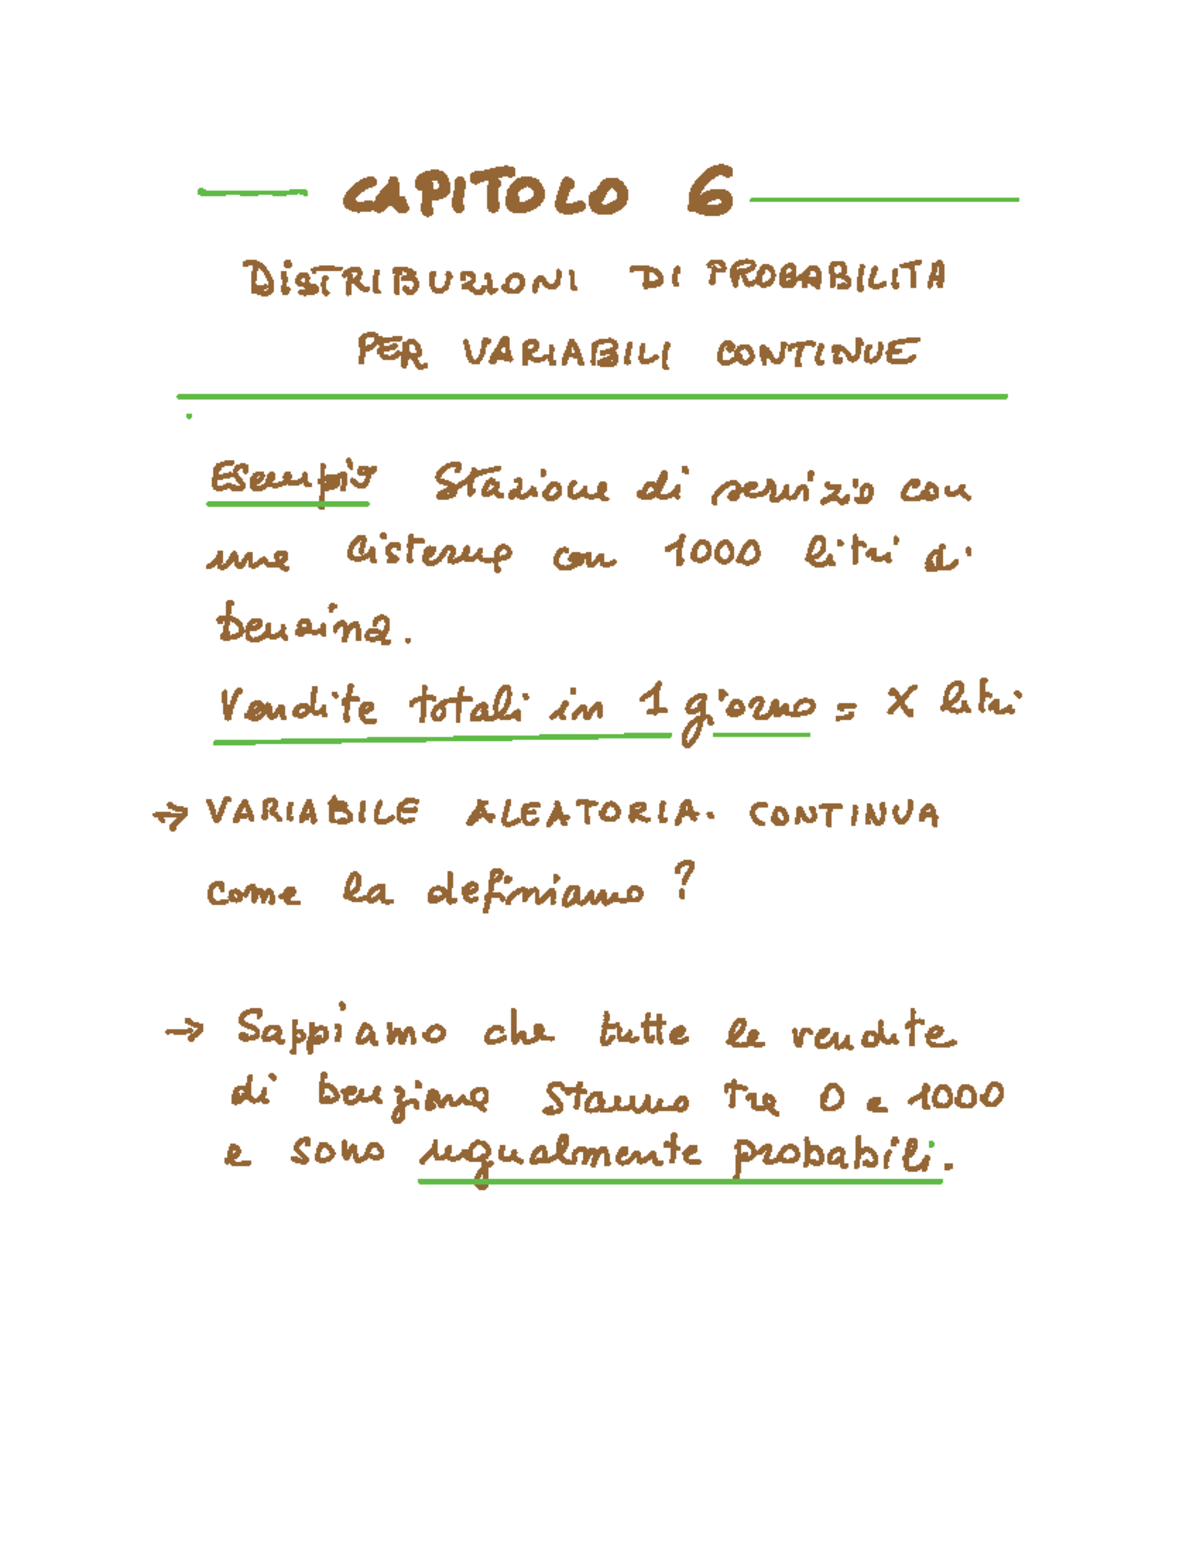 CAPITOLO 6
DISTRIBUZIONI DI PROBABILITA
PER VARIABILI CONTINUE
Esempio Stazione di servizio con
una cisterna con 1000 litri di
benzina.
Vendite totali in 1 giorno = X litri
→ VARIABILE ALEATORIA. CONTINUA
come la definiamo ?
→ Sappiamo che tutte le vendite
di benziona stanno tra 0 e 1000
e sono ugualmente probabili.